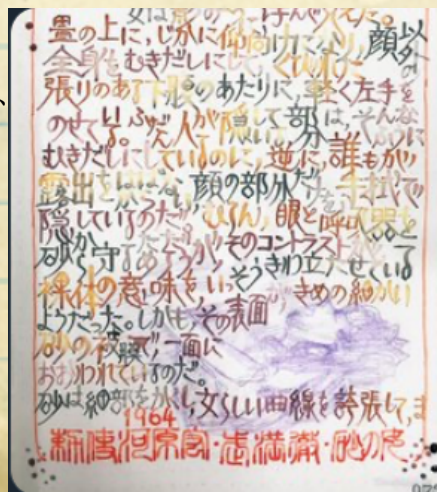 畳の上に、じかに仰向けになり、顔以外の
全身をむきだしにして、くびれた
張りのある下腹のあたりに、軽く左手を
のせている。ふだん人が隠している部分は、そんなふうに
むきだしにしているのに、逆に、誰もが
露出をはばからない、顔の部分だけを手拭で
隠しているのだ。むろん、眼と呼吸器を
砂から守るためだろうが、そのコントラストが
裸体の意味を、いっそうきわ立たせている
ようだった。しかも、その表面が、きめの細かい
砂の被膜で、一面に
おおわれているのだ。
砂は細部をかくし、女らしい曲線を誇張して、ま
1964
勅使河原宏・武満徹・砂の女